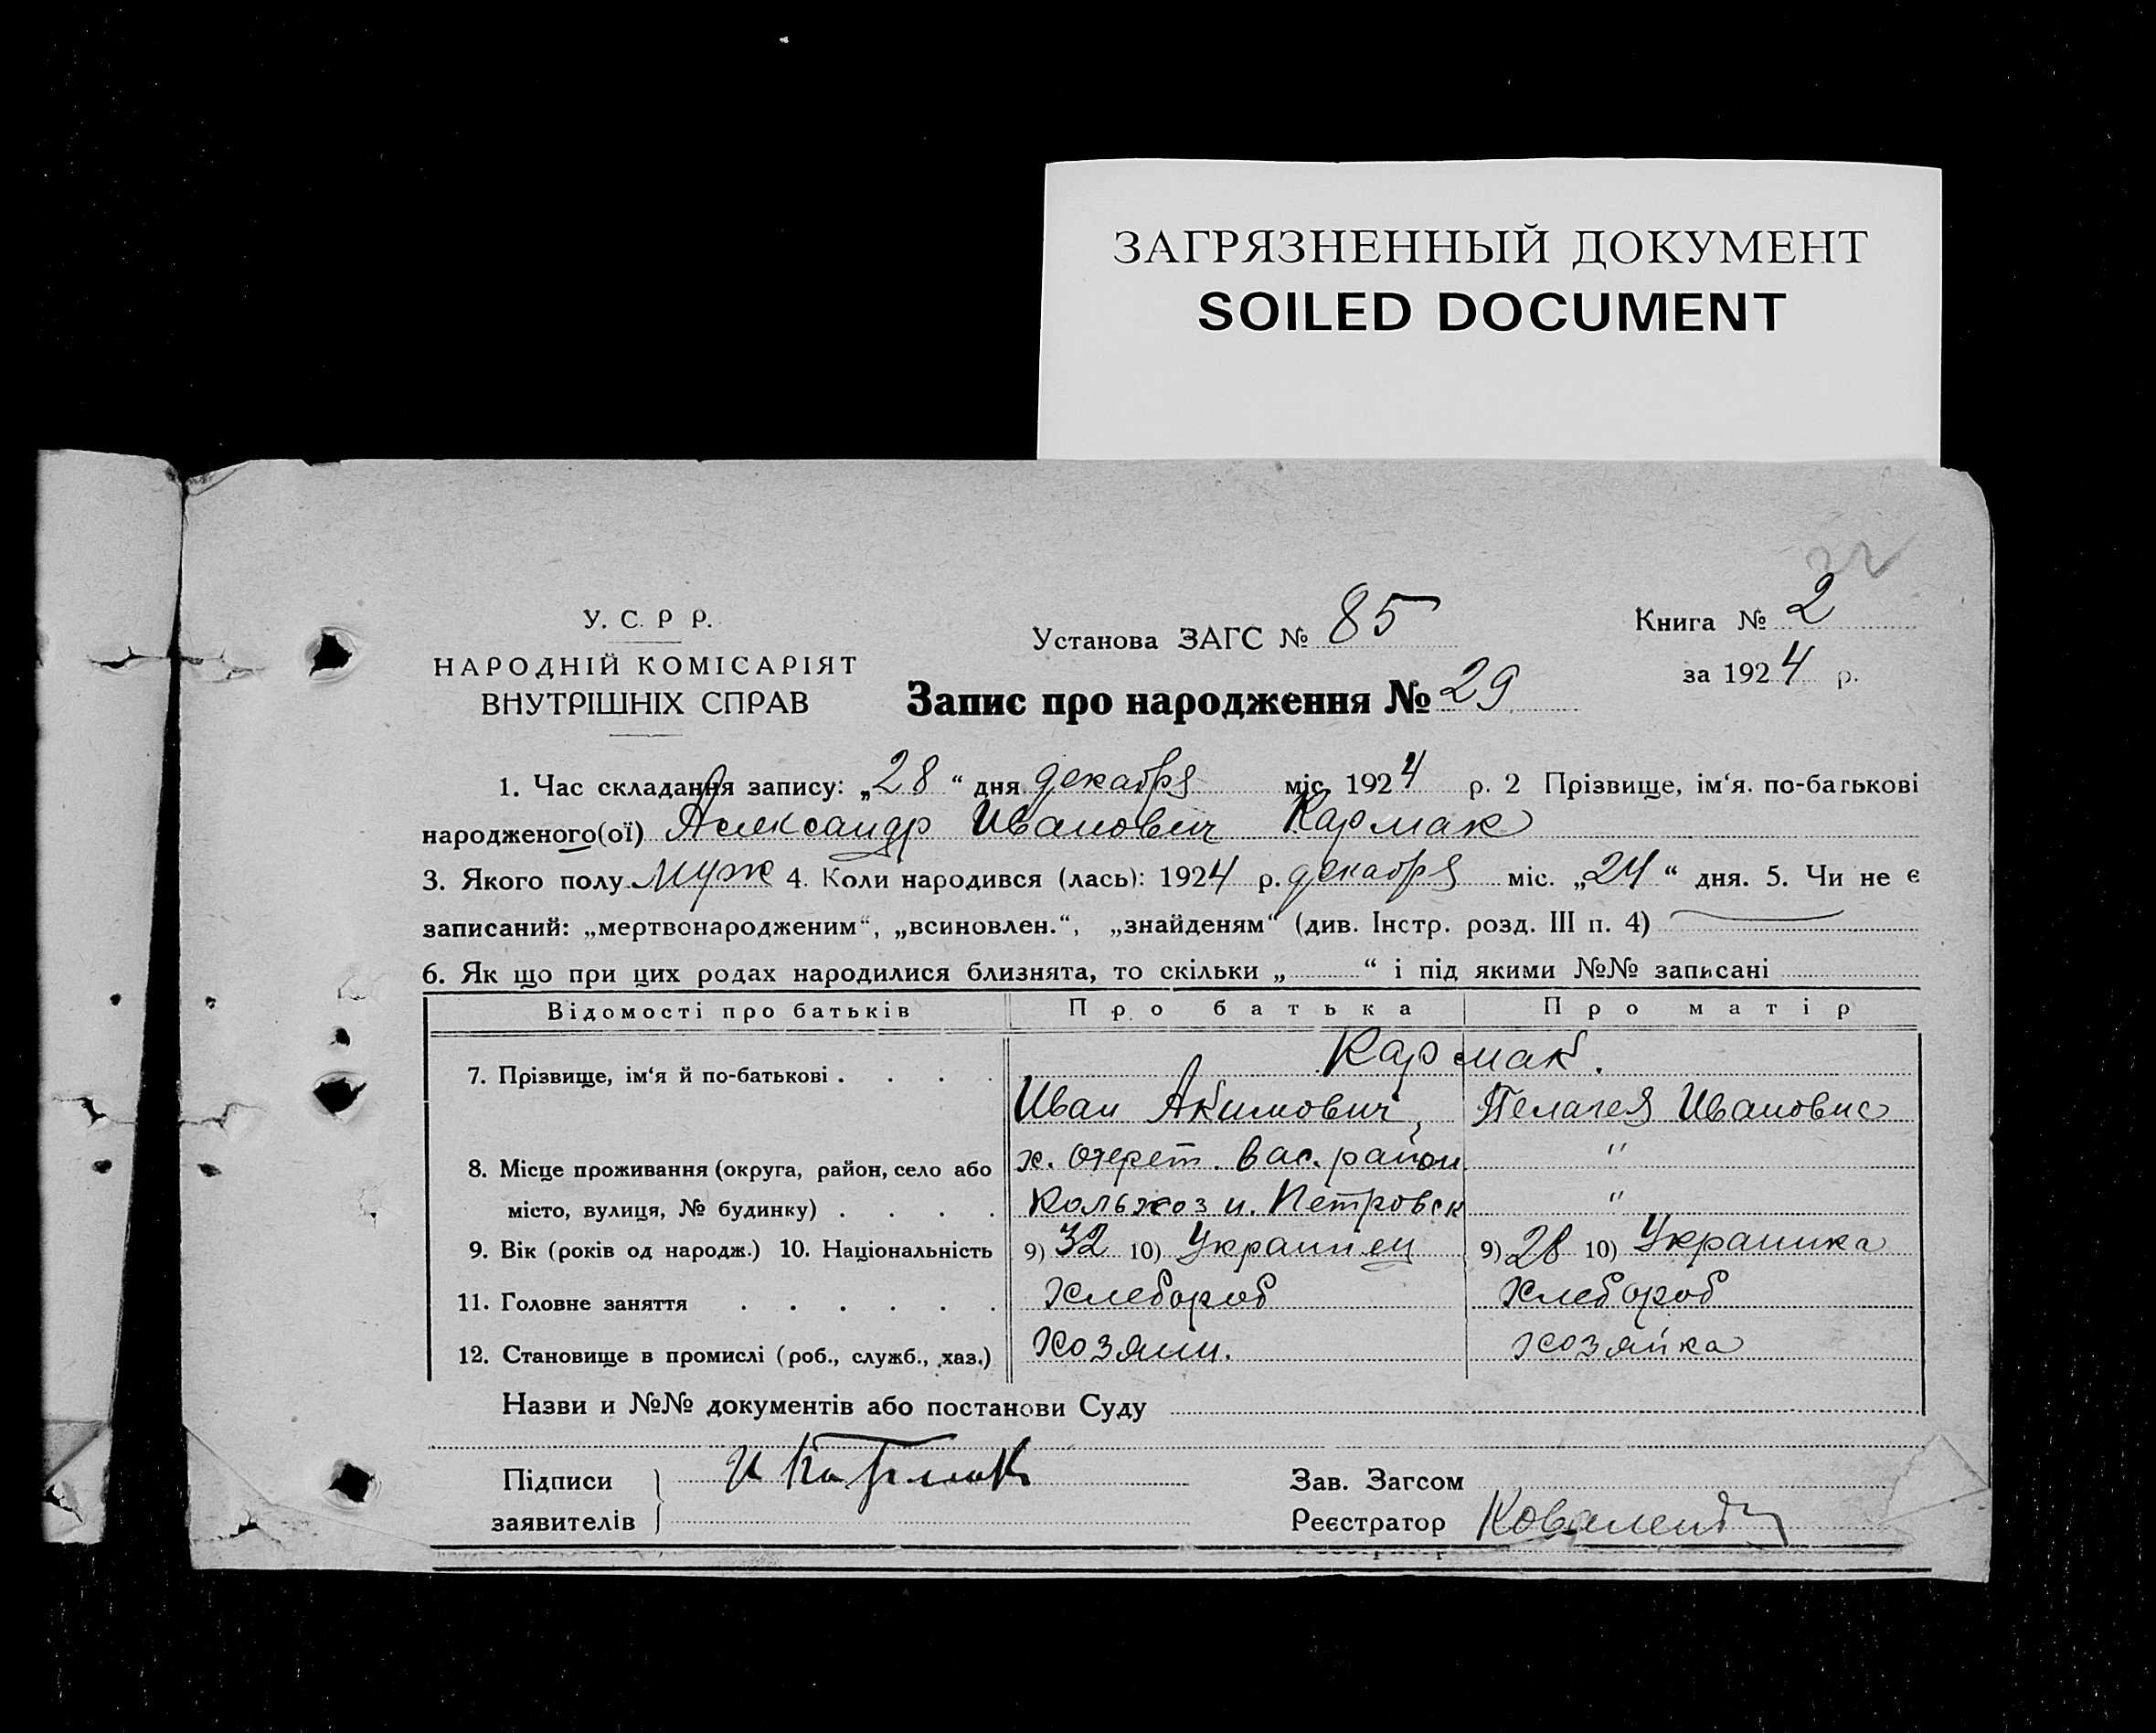 ЗАГРЯЗНЕННЫЙ ДОКУМЕНТ
SOILED DOCUMENT
У. С. Р Р.
НАРОДНІЙ КОМІСАРІЯТ
ВНУТРІШНІХ СПРАВ
Установа ЗАГС № 85
Книга № 2
за 1924 р.
Запис про народження № 29
1. Час складання запису: „28“ дня декабря міс. 1924 р. 2 Прізвище, ім‘я. по-батькові
народженого(ої) Александр Иванович Кармак
3. Якого полу муж 4. Коли народився (лась): 1924 р. декабря міс. „24“ дня. 5. Чи не є
записаний: „мертвонародженим“, „всиновлен.“, „знайденям“ (див. Інстр. розд. III п. 4)
6. Як що при цих родах народилися близнята, то скільки „ “ і під якими №№ записані
Відомості про батьків Про батька Про матір
7. Прізвище, ім‘я й по-батькові . . . . Кармак.
Иван Акимович Пелагея Ивановна
8. Місце проживання (округа, район, село або х. Очерет. Вас. район "
місто, вулиця, № будинку) . . . . Кольхоз и. Петровск "
9. Вік (років од народж.) 10. Національність 9) 32 10) Украинец 9) 28 10) Украинка
11. Головне заняття . . . . . . Хлебороб Хлебороб
12. Становище в промислі (роб., служб., хаз.) Хозяин. хозяйка
Назви и №№ документів або постанови Суду
Підписи И Кармак Зав. Загсом
заявителів Реєстратор